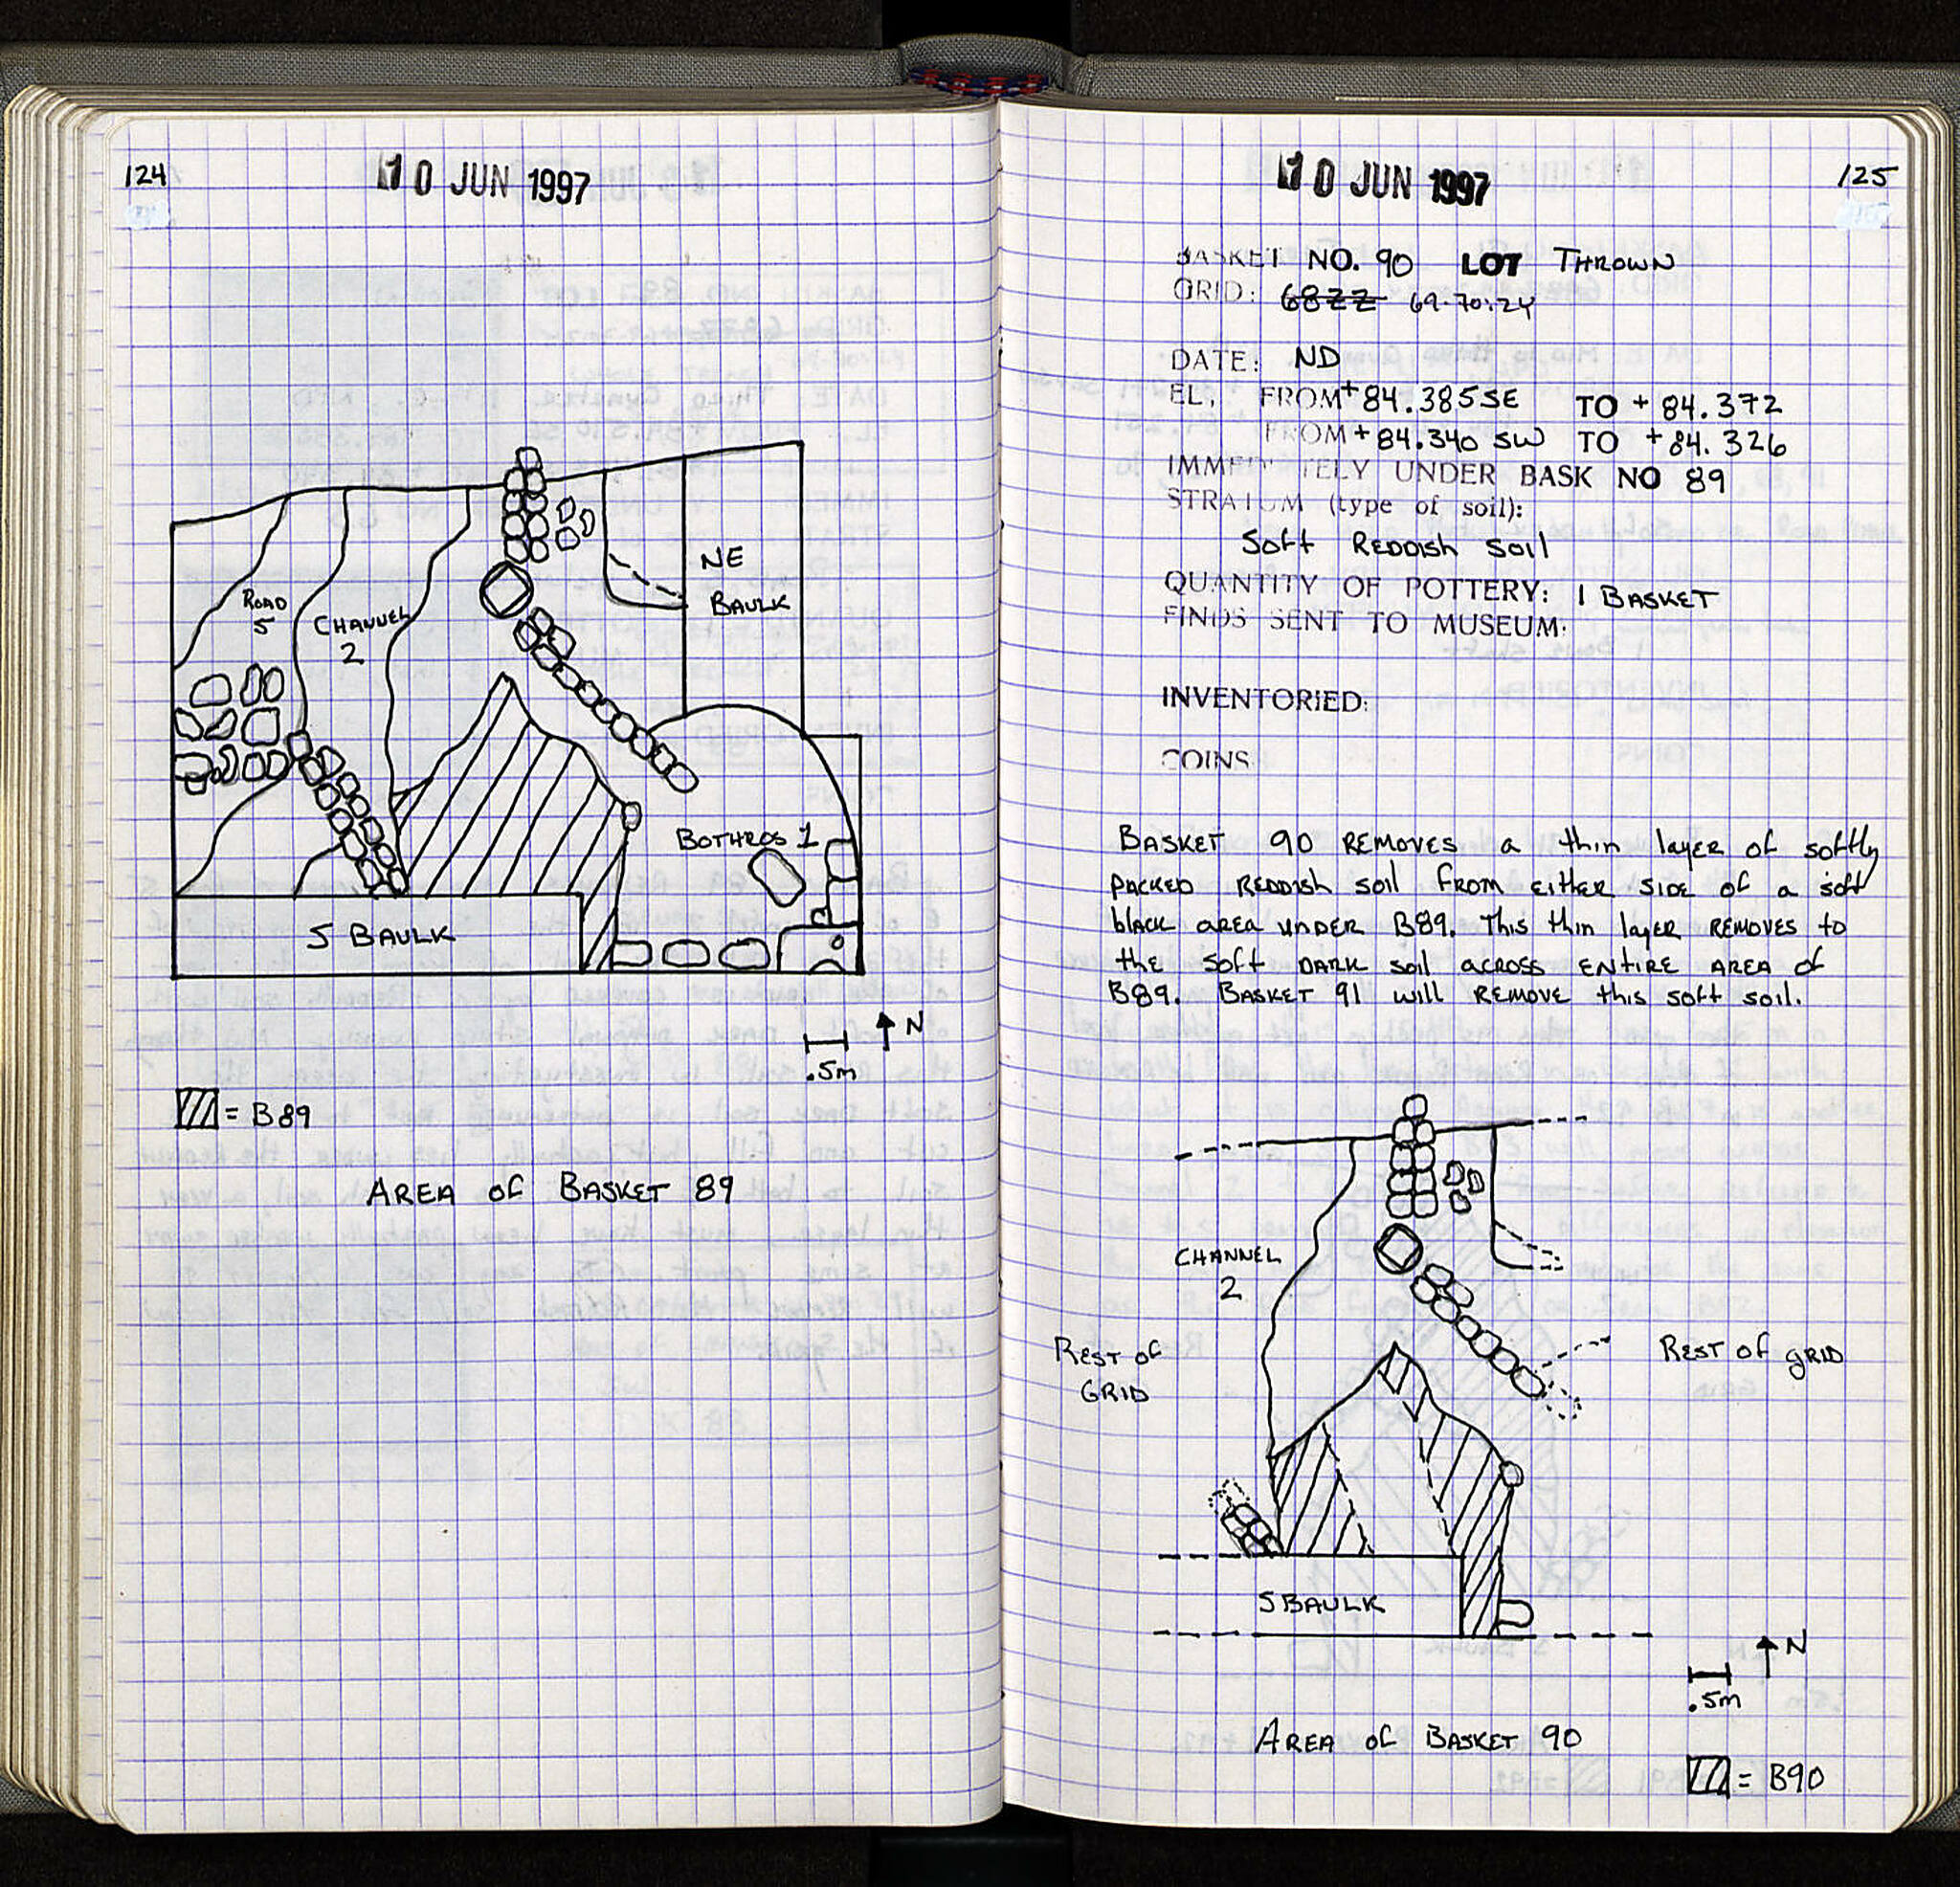 124
10 JUN 1997
ROAD
5
CHANNEL
2
NE
BAULK
BOTHROS 1
S BAULK
N
.5m
= B89
AREA of BASKET 89
10 JUN 1997
125
BASKET NO. 90 LOT THROWN
GRID: 68ZZ 69-70:ZY
DATE: ND
EL, FROM +84.385SE TO +84.372
FROM +84.340 SW TO +84.326
IMMEDIATELY UNDER BASK NO 89
STRATUM (type of soil):
Soft REDDISH SOIL
QUANTITY OF POTTERY: 1 BASKET
FINDS SENT TO MUSEUM:
INVENTORIED:
COINS
BASKET 90 REMOVES a thin layer of softly
packed REDDISH soil from EITHER SIDE of a soft
black area under B89. This thin layer REMOVES to
the soft DARK soil across ENTIRE AREA of
B89. BASKET 91 will REMOVE this soft soil.
CHANNEL
2
REST of
GRID
REST of gRID
S BAULK
N
.5m
AREA of BASKET 90
= B90